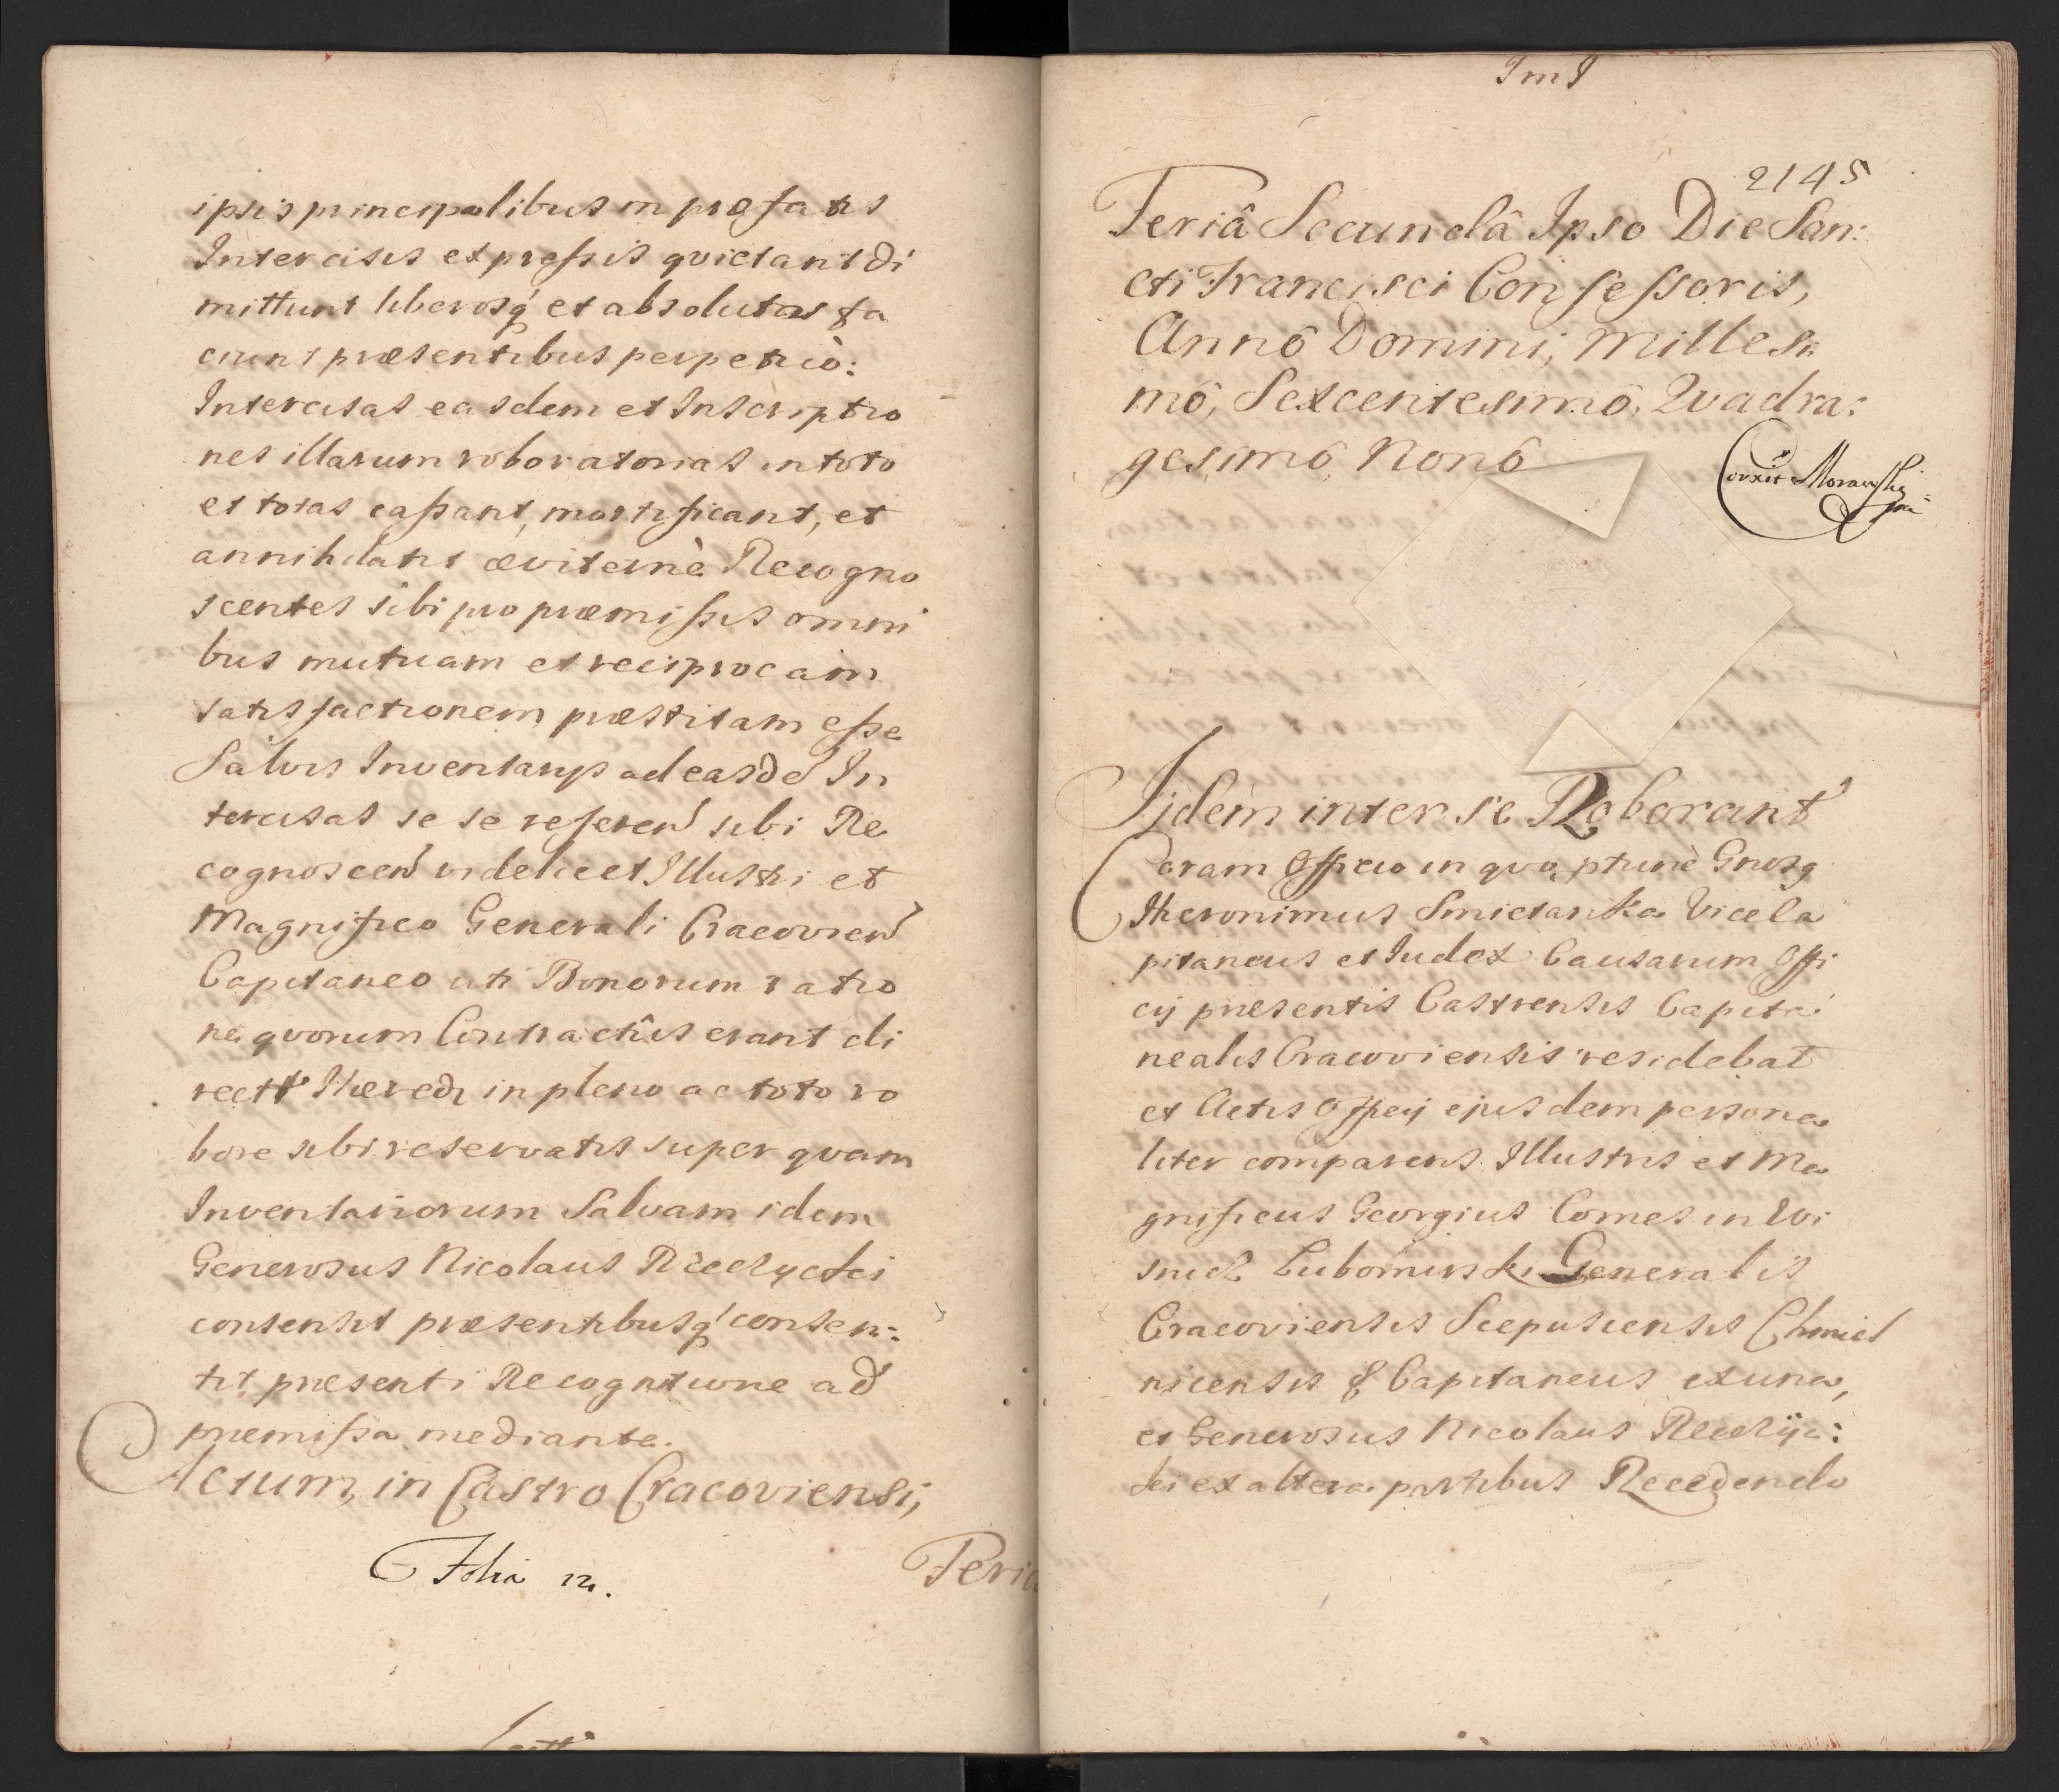 ipsis principalibus in præfatis
Intercisis expressis qvietant di
mittunt liberosq́ et absolutos fa
ciunt præsentibus perpetuò:
Intercisas easdem et Inscriptio
nes illarum roboratorias in toto
et totas cassant, mortificant, et
annihilant æviternè Recogno
scentes sibi pro præmissis omni
bus mutuam et reciprocam
satisfactionem præstitam esse
Salvis Inventarijs ad easdē In
tercisas se se referen̄ sibi Re
cognoscen̄ videlicet Illustri et
Magnifico Generali Cracovien̄
Capitaneo uti Bonorum ratio
ne qvorum Contractûs erant di
recto Hæredi in pleno ac toto ro
bore sibi reservatis super qvam
Inventariorum Salvam idem
Generosus Nicolaus
consensit præsentibusq́ consen:
tit præsenti Recognitione ad
præmissa mediante.
Actum, in Castro Cracoviensi,
Folia 12.
Feria
2145
Feriâ Secundâ Ipso Die San:
cti Francisci Confessoris,
Annô Domini, Millesi:
mô, Sexcentesimô, Qvadra:
gesimô Nonô
Corxit Morawski
Iidem inter se Roborant
Coram Officio in qvo ptunc Gnosq
Hieronimus Smietanka Viceca
pitaneus et Iudex Causarum Offi
cij præsentis Castrensis Capita:
nealis Cracoviensis residebat
et Actis Officij ejusdem persona
liter comparens Illustris et Ma
gnificus Georgius Comes in Wi
snicz Lubomirski Generalis
Cracoviensis Scepusiensis Chmiel
nicensis & Capitaneus ex una,
et Generosus Nicolaus
ki ex altera partibus Recedendo